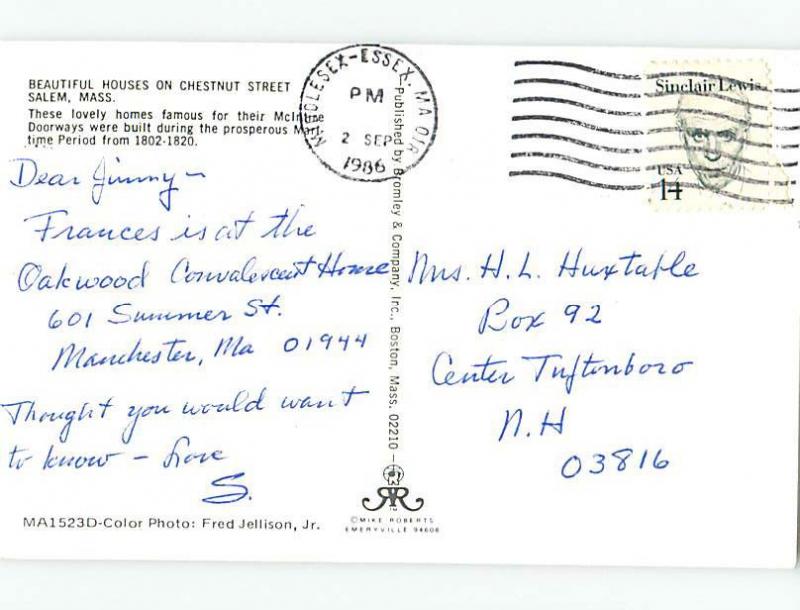 BEAUTIFUL HOUSES ON CHESTNUT STREET
SALEM, MASS.
These lovely homes famous for their McIntire
Doorways were built during the prosperous Mari-
time Period from 1802-1820.
MIDDLESEX-ESSEX, MA
PM
2 SEP
1986
Sinclair Lewis
USA
14
Dear Jimmy ~
Frances is at the
Oakwood Convalescent Home
601 Summer St.
Manchester, Ma 01944
Thought you would want
to know - Love
S.
Published by Bromley & Company, Inc., Boston, Mass. 02210 -
Mrs. H. L. Huxtable
Box 92
Center Tuftonboro
N.H
03816
MA1523D-Color Photo: Fred Jellison, Jr.
©MIKE ROBERTS
EMERYVILLE 94608